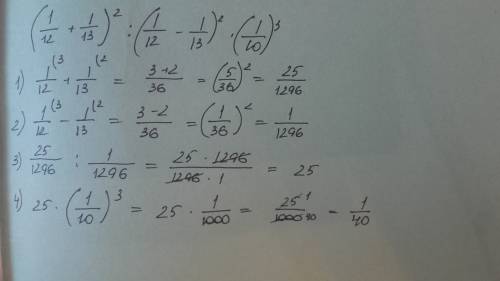 (1/12 + 1/13)² : (1/12 − 1/13)² · (1/10)³
1) 1/12 (3 + 1/13 (2 = 3+2/36 = (5/36)² = 25/1296
2) 1/12 (3 − 1/13 (2 = 3−2/36 = (1/36)² = 1/1296
3) 25/1296 : 1/1296 = 25 · 1296/1296 · 1 = 25
4) 25 · (1/10)³ = 25 · 1/1000 = 25 1/1000 40 = 1/40